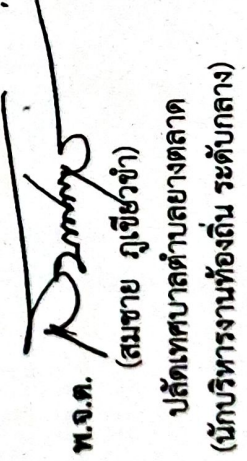 พ.จ.ต.
(สมชาย ภูเขียวขำ)
ปลัดเทศบาลตำบลยางตลาด
(นักบริหารงานท้องถิ่น ระดับกลาง)